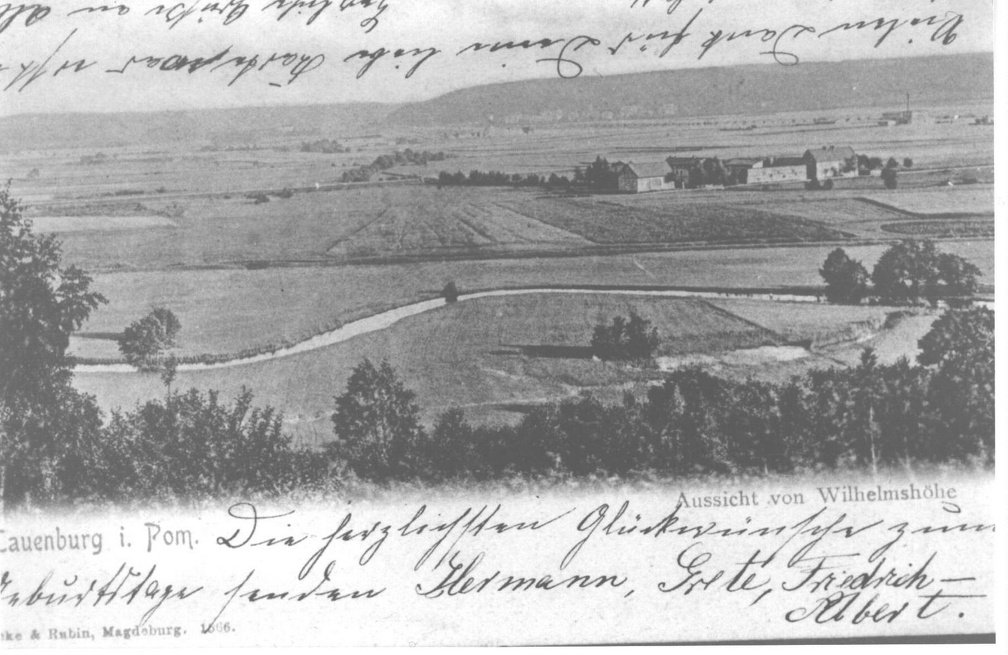 Vielen Dank für Deine liebe Karte
Grüße an
Aussicht von Wilhelmshöhe
Lauenburg i. Pom.
Die herzlichsten Glückwünsche zum
Geburtstage senden Hermann, Grete, Friedrich-
Albert.
& Rubin, Magdeburg.